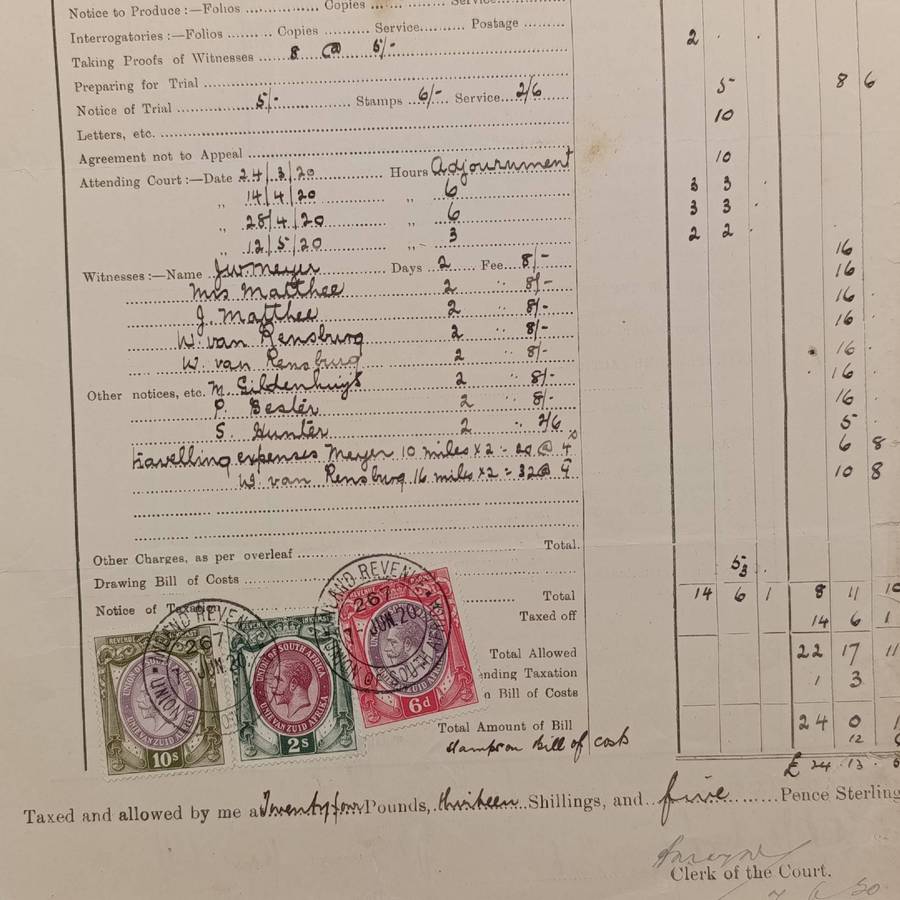 Notice to Produce :—Folios .......... Copies .......... Service..........
Interrogatories :—Folios .......... Copies .......... Service.......... Postage .......... 2 . .
Taking Proofs of Witnesses 8 @ 5/-
Preparing for Trial .......... 5 8 6
Notice of Trial 5/- Stamps 6/- Service 2/6
Letters, etc. .......... 10
Agreement not to Appeal ..........
Attending Court :—Date 24/3/20 Hours Adjournment 10
" 14/4/20 " 6 3 3 .
" 28/4/20 " 6 3 3 .
" 12/5/20 " 3 2 2 .
Witnesses :—Name J.W. Meyer Days 2 Fee 8/- 16
Mrs Matthee 2 " 8/- 16
J. Matthee 2 " 8/- 16
W. van Rensburg 2 " 8/- 16
W. van Rensburg 2 " 8/- 16
Other notices, etc. M. Gildenhuijs 2 " 8/- 16
P. Bester 2 " 8/- 16
S. Hunter 2 " 2/6 5
Travelling expenses Meyer 10 miles x 2 = 20 @ 4 6 8
W. van Rensburg 16 miles x 2 = 32 @ 4 10 8
Other Charges, as per overleaf .......... Total.
Drawing Bill of Costs .......... 5
Notice of Taxation .......... Total 14 6 1 8 11 10
Taxed off 14 6 1
Total Allowed 22 17 11
nding Taxation 1 3
n Bill of Costs
Total Amount of Bill 24 0
Stamps on Bill of costs 12
£ 24 . 13 . 5
INLAND REVENUE
267
JUN. 20
UNION
INLAND REVENUE
267
7- JUN. 20
UNION OF SOUTH AFRICA
REVENUE INKOMST
UNION OF SOUTH AFRICA
UNIE VAN ZUID AFRIKA
10s
REVENUE INKOMST
UNION OF SOUTH AFRICA
UNIE VAN ZUID AFRIKA
2s
6d
Taxed and allowed by me a Twentyfour Pounds, thirteen Shillings, and five Pence Sterling
Clerk of the Court.